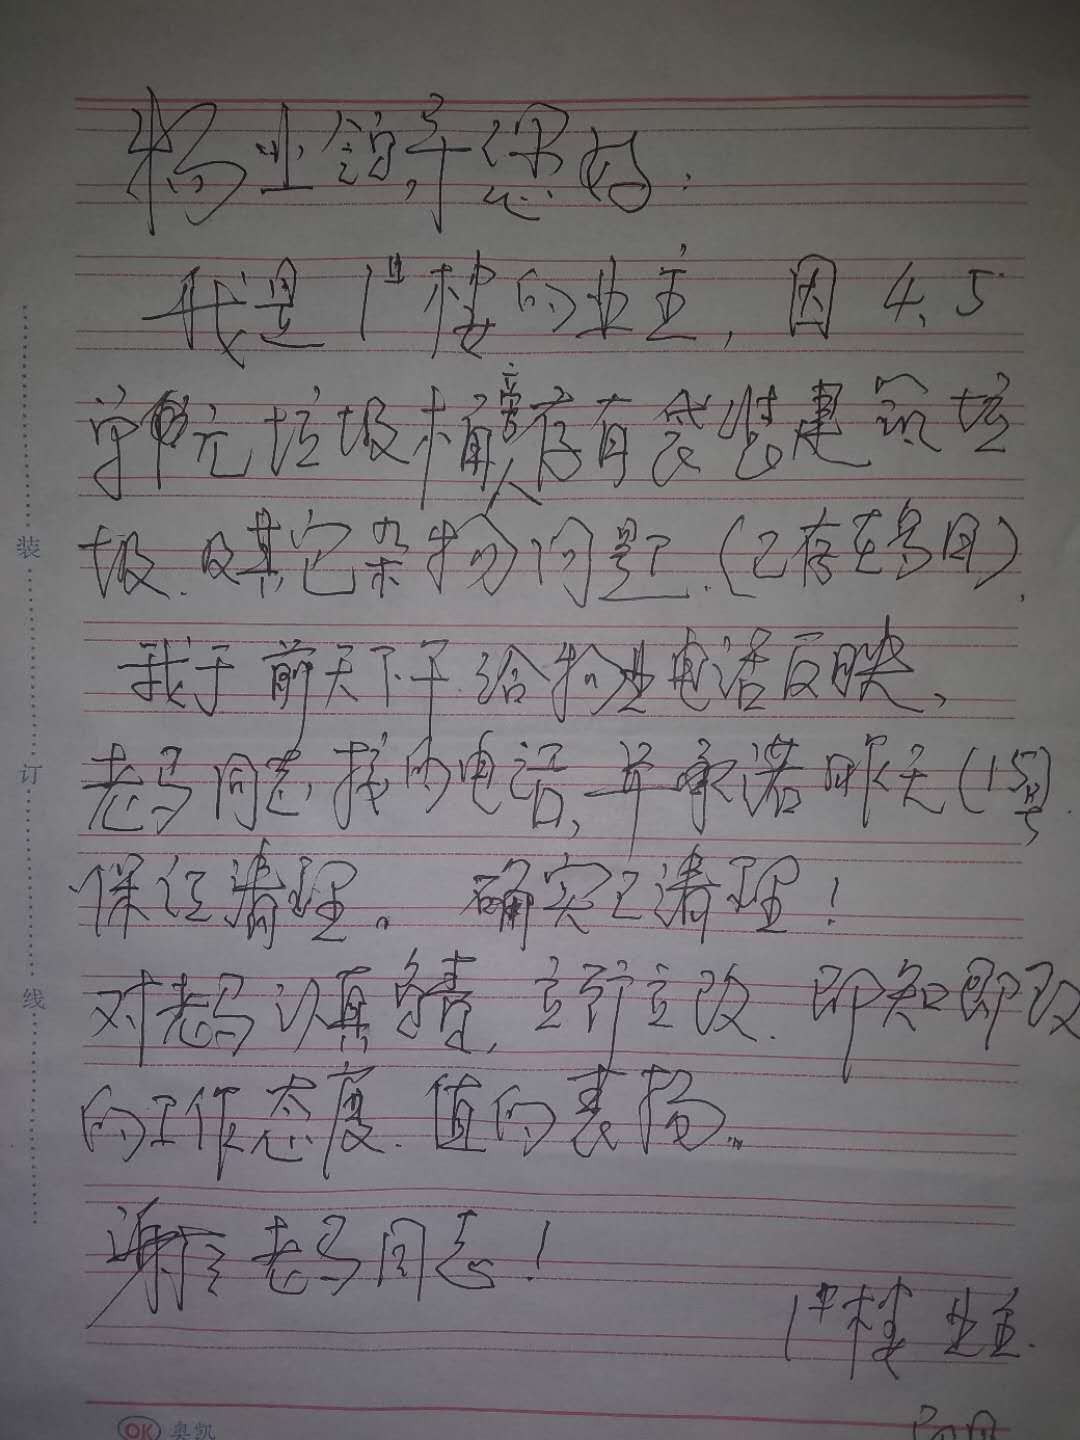 物业领导您好:
我是1#楼的业主,因4、5
单元垃圾桶旁存有袋装建筑垃
圾.及其它杂物问题.(已存在多日),
我于前天下午给物业电话反映、
老马同志接的电话,并承诺昨天(15号)
保证清理。确实已清理!
对老马认真负责,立行立改.即知即改
的工作态度.值的表扬..
谢谢老马同志!
1#楼业主.
装
订
线
OK 奥凯